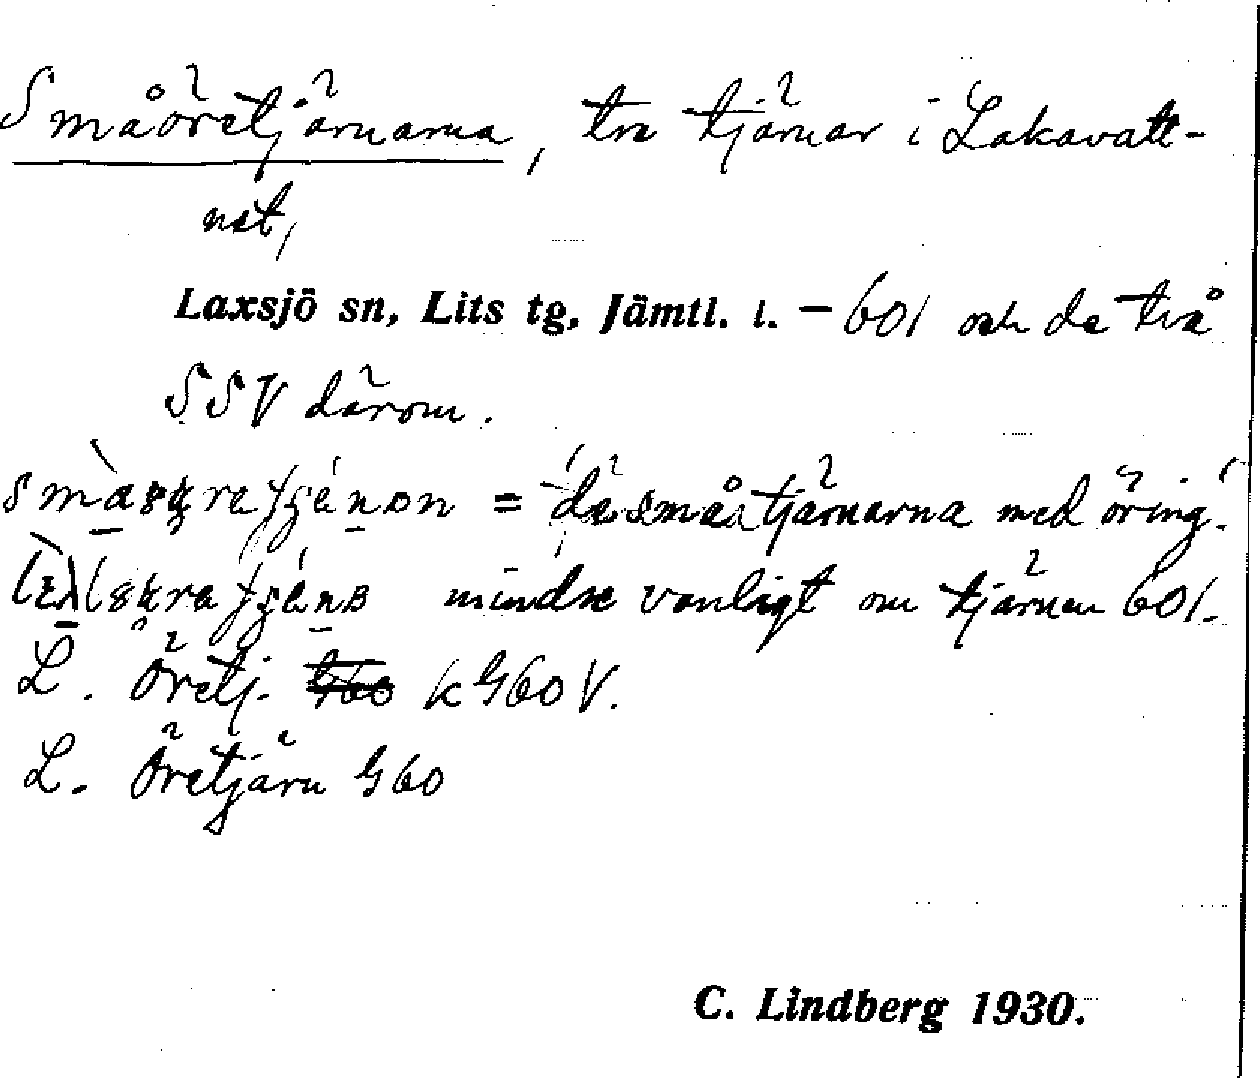 Småöretjärnarna, tre tjärnar i Lakavatt-
net,
Laxsjö sn, Lits tg, Jämtl. l. – 601 och de två
SSV därom.
= de små tjärnarna med öring.
mindre vanligt om tjärnen 601.
L. Öretj. k G60 V.
L. Öretjärn G60
C. Lindberg 1930.